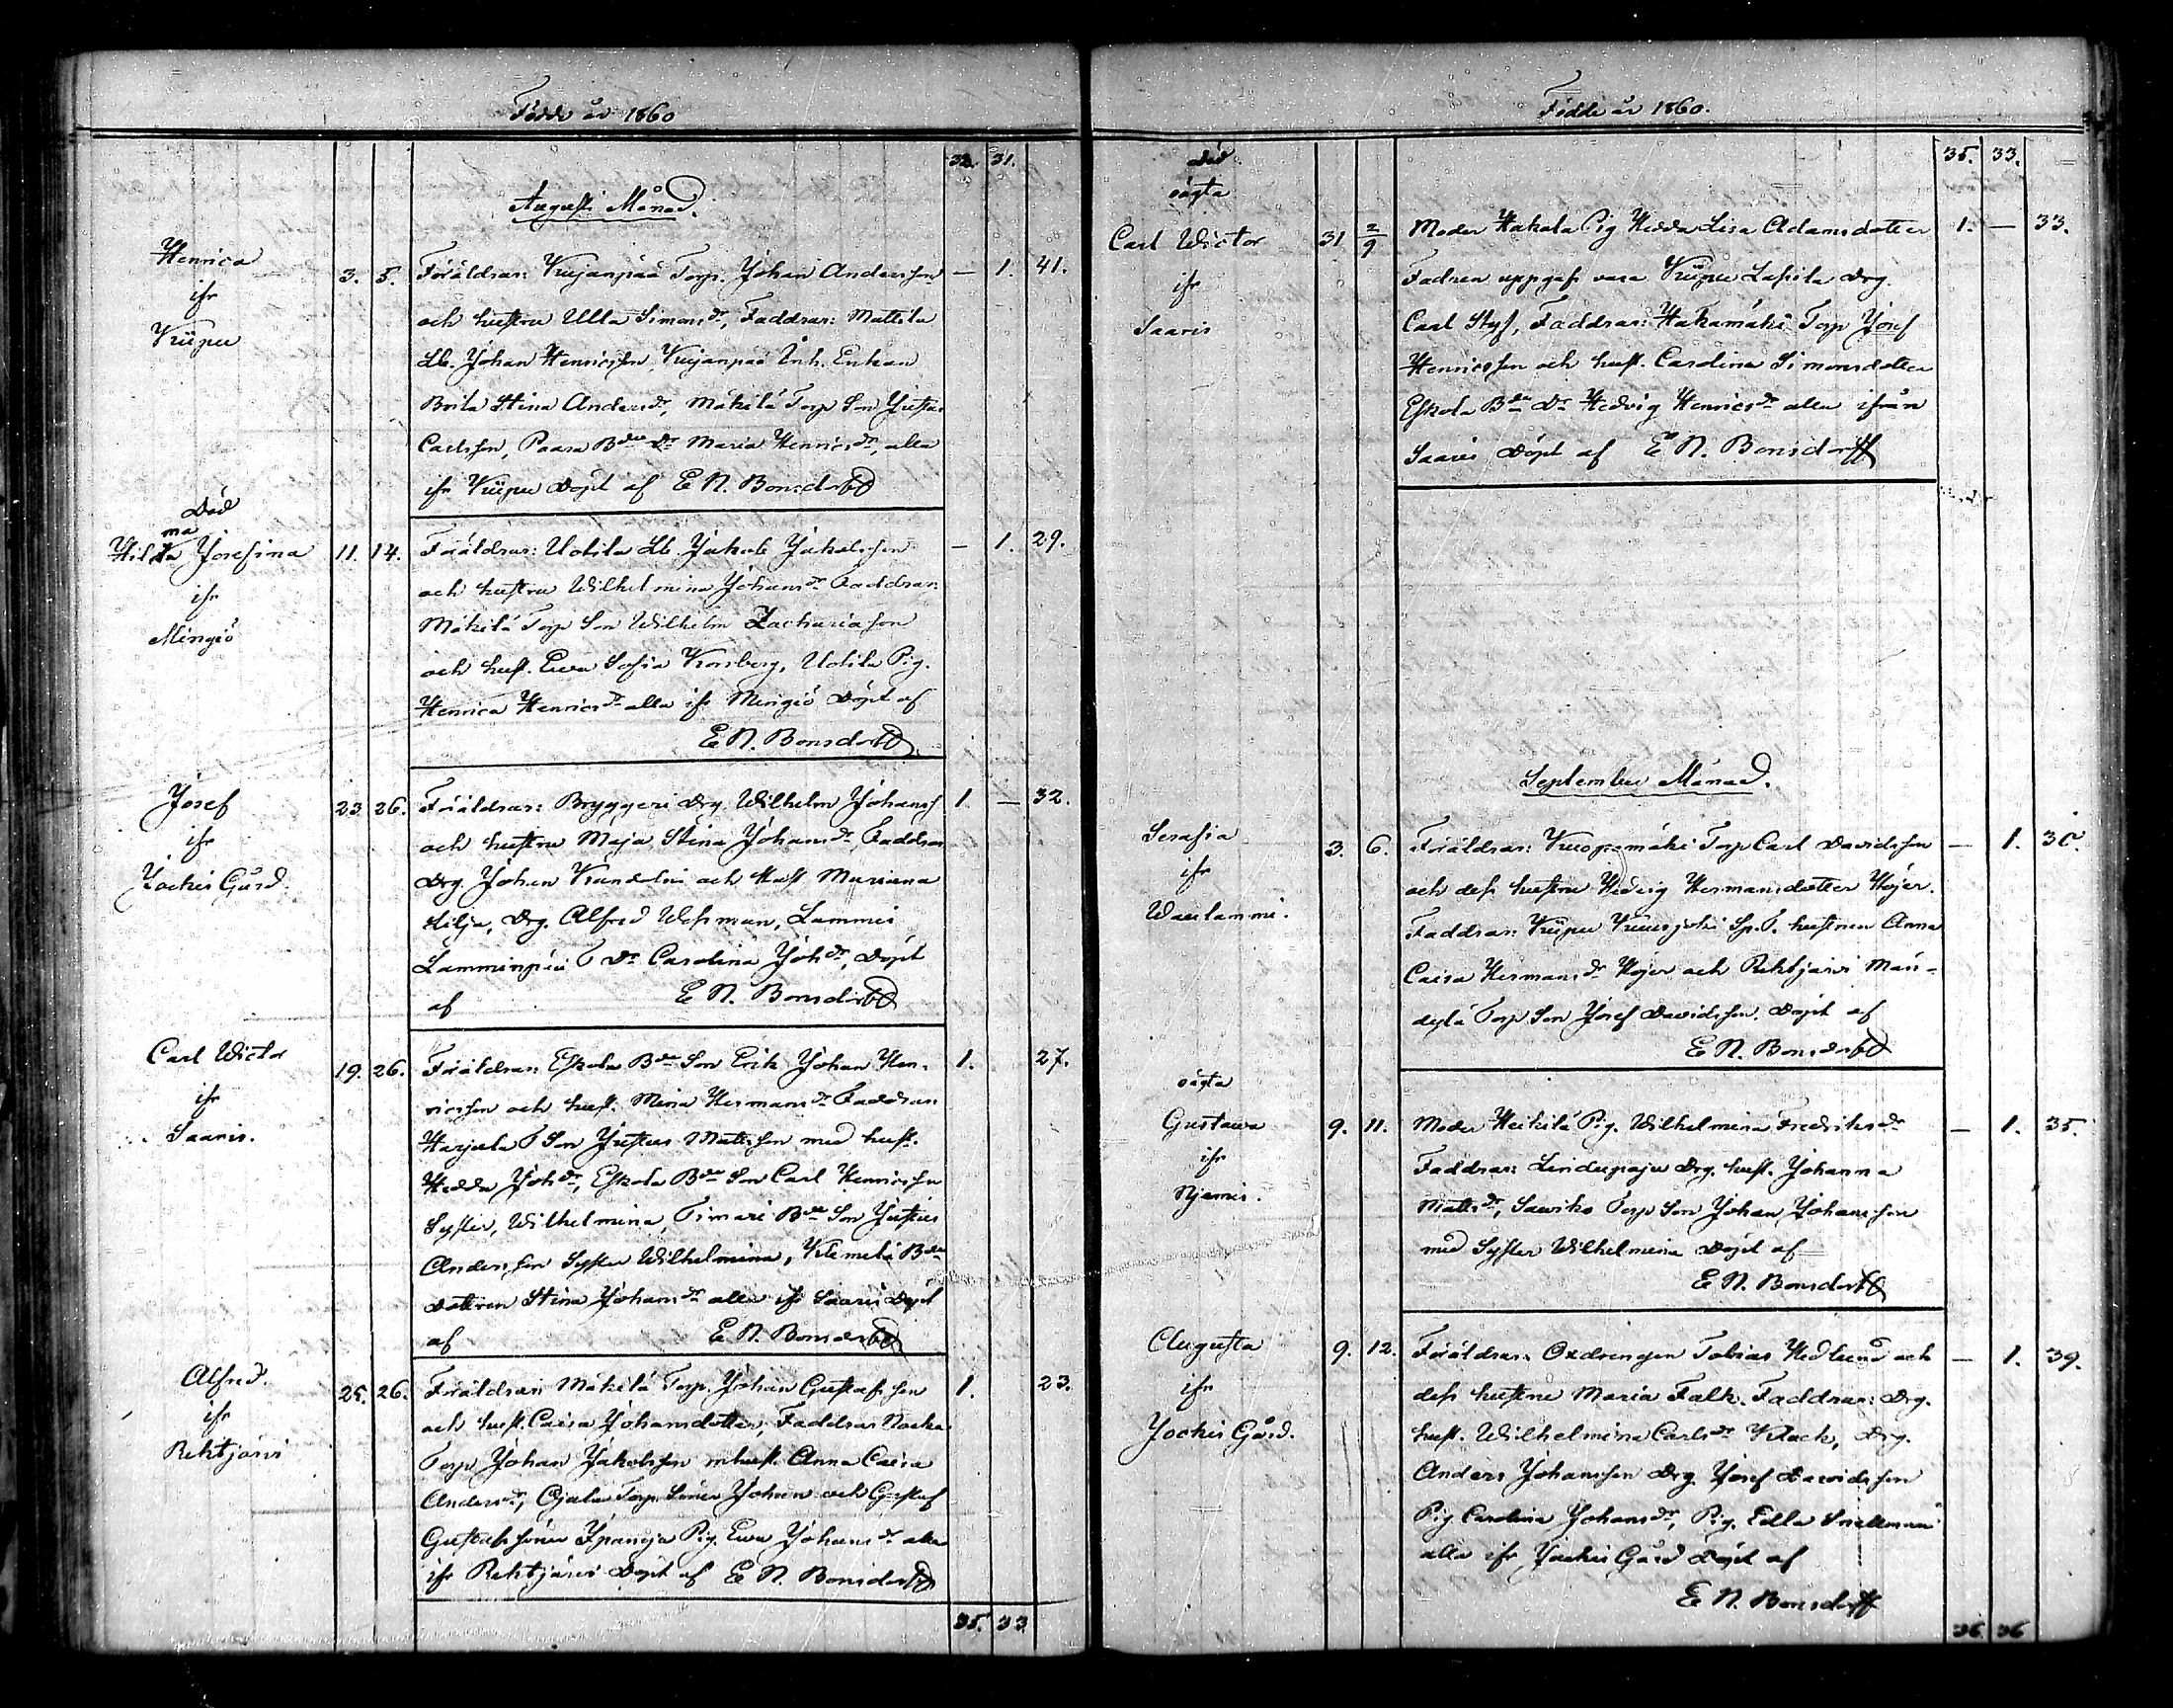 Födde år 1860
32. 31.
Augusti Månad.
Henrica
ifr
Kuipu
3. 5. Föräldrar: Kujanpää Torp. Johan Andersson — 1. 41.
och hustru Ulla Simonsdr, Faddrar: Mattila
Lb. Johan Henricsson, Kujanpää Inh. Enkan
Brita Stina Andersdr, Mäkilä Torp Son Justus
Carlsson, Paara Bde Dr Maria Henricsdr, alla
ifr Kuipu Döpt af E N. Bonsdorff
Död
ma
Hilda Josefina
ifr
Mingiö
11. 14. Föräldrar: Uotila Lb Jakob Jakobsson — 1. 29.
och hustru Wilhelmina Johansdr Faddrar:
Mäkilä Torp Son Wilhelm Zachariasson
och hust. Ewa Sofia Kronberg, Uotila Pig.
Henrica Henricsdr alla ifr Mingiö Döpt af
E N. Bonsdorff
Josef
ifr
Jockis Gård.
23. 26. Föräldrar: Bryggeri Drg. Wilhelm Johanss 1. — 32.
och hustru Maja Stina Johansdr, Faddrar
Drg. Johan och Hust Mariana
Lilja, Drg. Alfred Wessman, Lammi
Lamminpää T Dr Carolina Johdr, Döpt
af E N. Bonsdorff
Carl Wictor
ifr
Saaris.
19. 26. Föräldrar: Eskola Bde Son Erik Johan Hen- 1. 27.
ricsson och hust. Mina Hermansdr Faddrar:
Harjula T Son Justus Mattsson med hust.
Hedda Johdr, Eskola Bde Son Carl Henricsson
Syster, Wilhelmina, Timari Bde Son Justus
Andersson Syster Wilhelmina, Klemelä Bde
dotteren Stina Johansdr alla ifr Saaris Döpt
af E N. Bonsdorff
Alfred.
ifr
Rehtijärvi
25. 26. Föräldrar: Mäkilä Torp. Johan Gustafsson 1. 23.
och hust. Caisa Johansdotter, Faddrar
Torp Johan Jakobsson m hust. Anna Caisa
Andersdr, Ojala Torp. Söner Johan och Gustaf
Gustafssöner Pig. Ewa Johansdr alla
ifr Rehtijärvi Döpt af E N. Bonsdorff
35. 33
Födde år 1860.
35. 33.
Död.
oägta
Carl Wictor
ifr
Saaris
31 2/9 Moder Hakala Pig Hedda Lisa Adamsdotter 1. — 33.
Fadren uppgafs vara Kuipu Lassila Drg.
Carl Styf, Faddrar: Hakamäki Torp Josef
Henricsson och hust. Carolina Simonsdotter
Eskola Bde Dr Hedvig Henricsdr alla ifrån
Saaris Döpt af E N. Bonsdorff
September Månad.
Serafia
ifr
Waulammi.
3. 6. Föräldrar: Torp Carl Davidsson — 1. 30.
och dess hustru Hedvig Hermansdotter Höjer.
Faddrar: Kuipu Sp. T. hustrun Anna
Caisa Hermansdr Höjer och Rehtijärvi Män-
dylä Torp Son Josef Davidsson. Döpt af
E N. Bonsdorff
oägta
Gustawa
ifr
Njemis.
9. 11. Moder Heikilä Pig. Wilhelmina Fredriksdr — 1. 35.
Faddrar: Lindupaju Drg. hust. Johanna
Mattsdr, Sawiko Torp Son Johan Johansson
med Syster Wilhelmina Döpt af
E N. Bonsdorff
Augusta
ifr
Jockis Gård.
9. 12. Föräldrar: Oxdrengen Tobias Hedlund och — 1. 39.
dess hustru Maria Falk. Faddrar: Drg.
hust. Wilhelmina Carlsdr Klack, Drg.
Anders Johansson Drg Josef Davidsson
Pig Carolina Johansdr, Pig. Edla Snellman
alla ifr Jockis Gård Döpt af
E N. Bonsdorff
36. 36